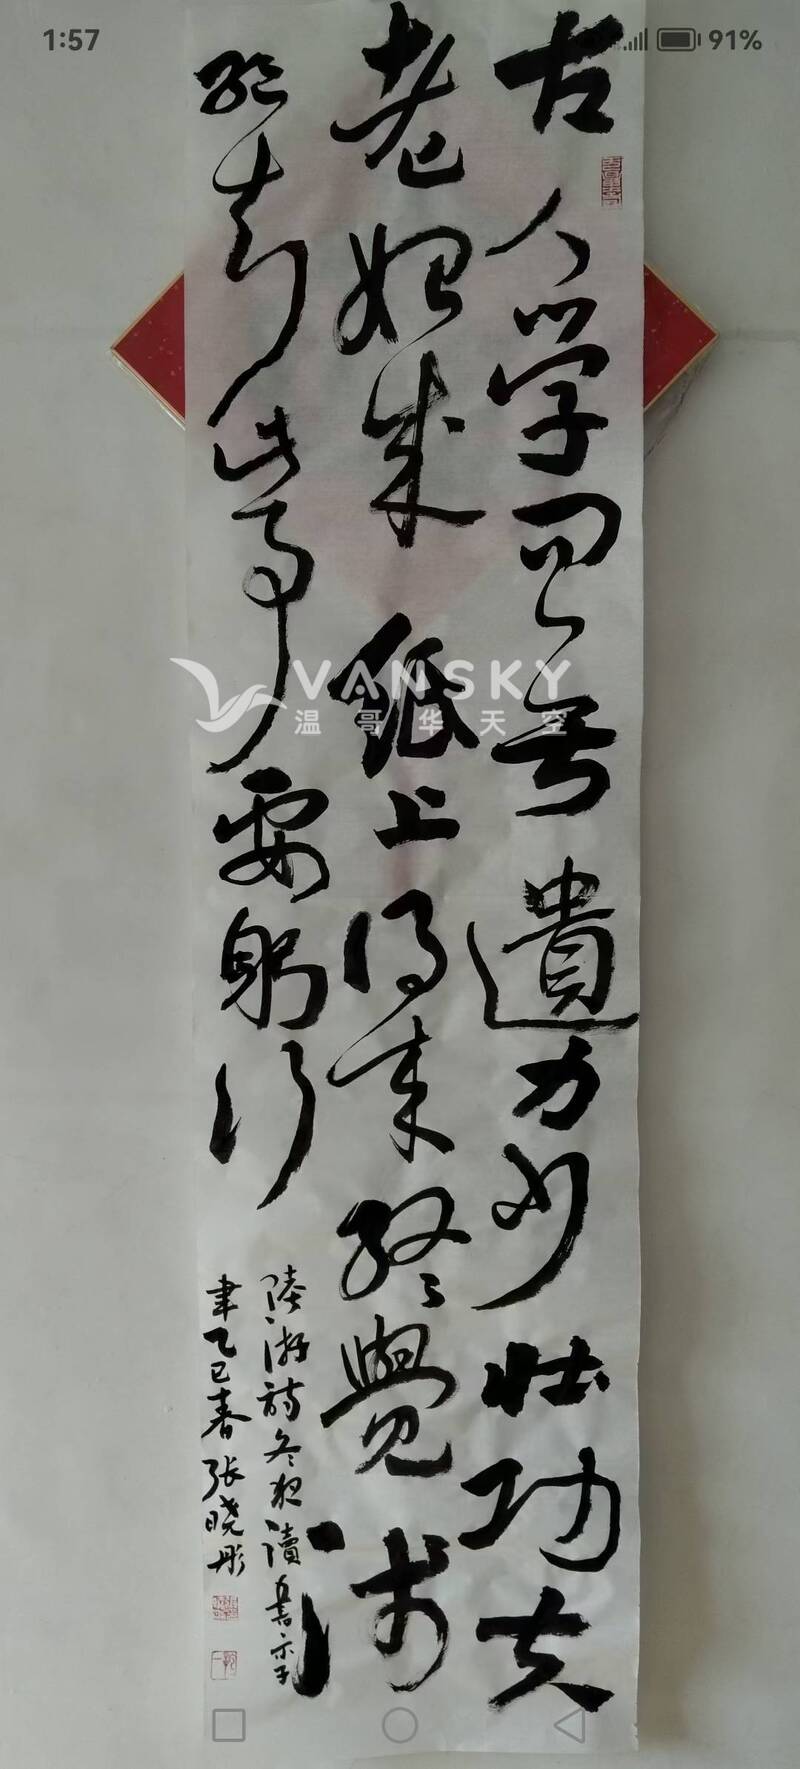 1:57
91%
古人学问无遺力少壮功夫
老始成紙上得来終覺淺
絶知此事要躬行
陸游詩冬夜讀書示子
聿乙巳春张晓彤
VANSKY
温哥华天空